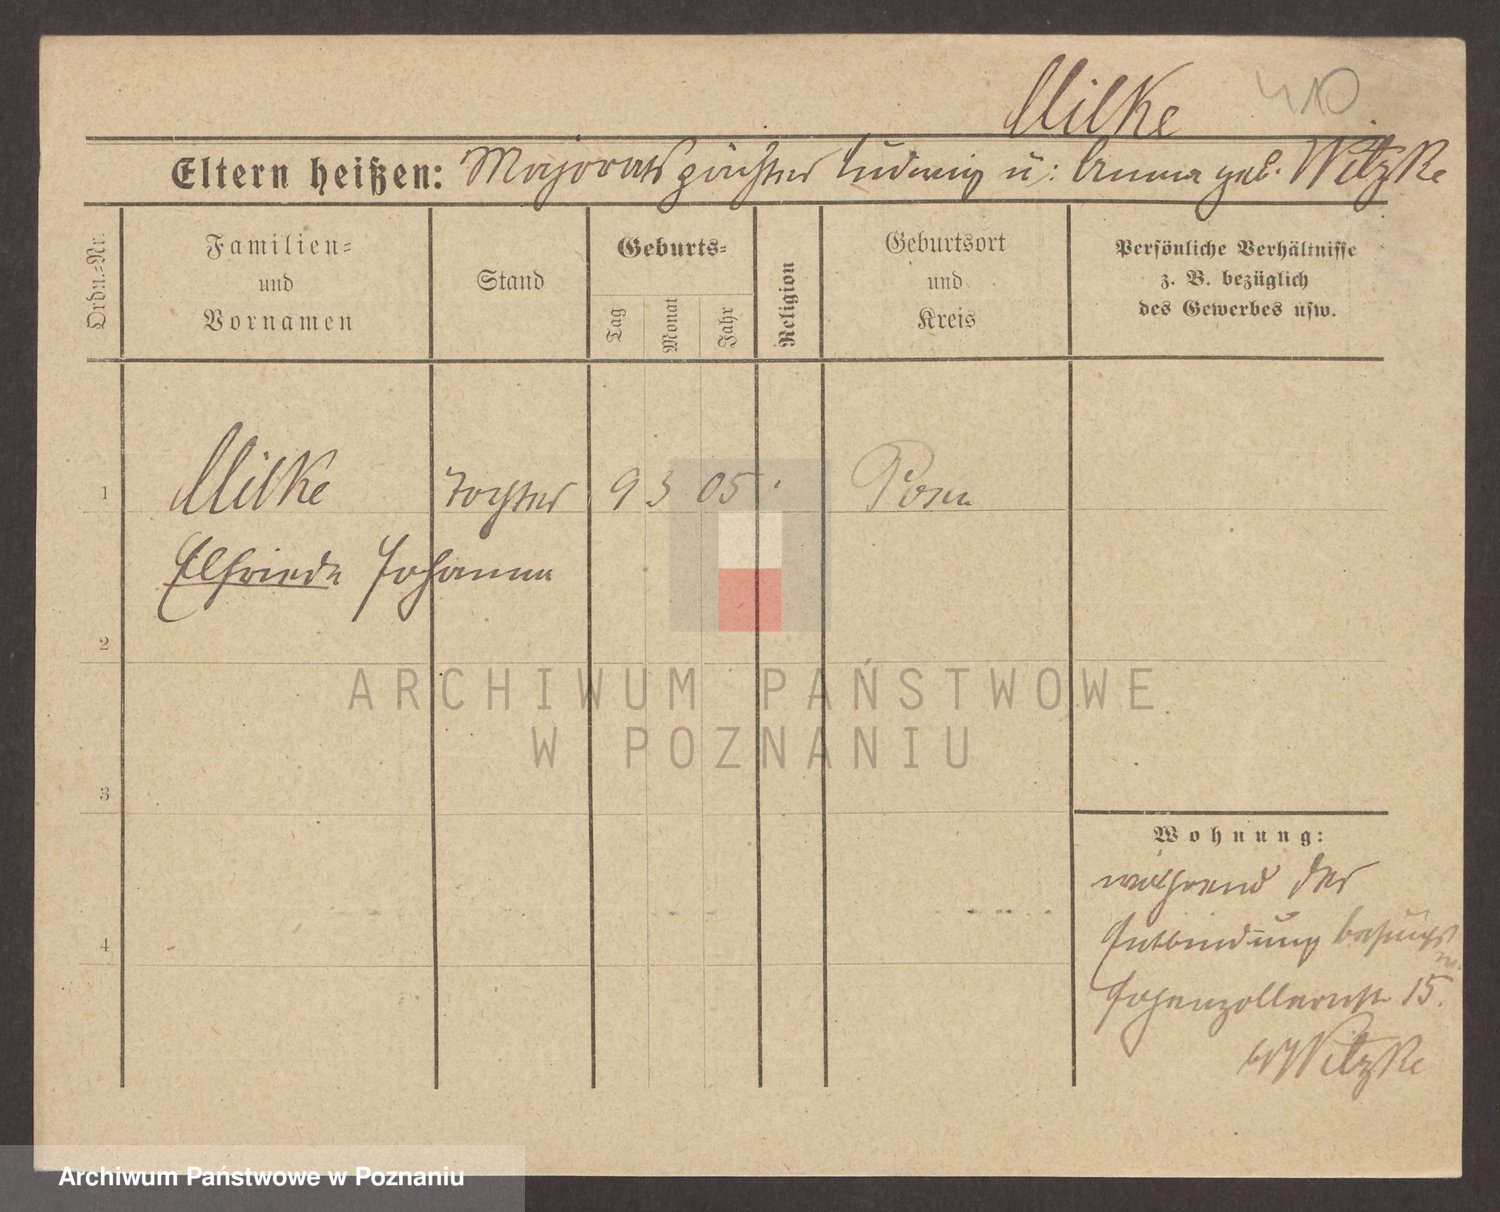 Milke
410
Eltern heißen: Majoratspächter Ludwig u: Anna geb. Witzke
Ordn.=Nr.
Familien=
und
Vornamen
Stand
Geburts=
Tag
Monat
Jahr
Religion
Geburtsort
und
Kreis
Persönliche Verhältnisse
z. B. bezüglich
des Gewerbes usw.
1 Milke Tochter 9 3 05 Posen
Elfriede Johanna
2
ARCHIWUM PAŃSTWOWE
W POZNANIU
3
Wohnung:
während der
4
Entbindung besuchsw.
Hohenzollernstr 15.
b/Witzke
Archiwum Państwowe w Poznaniu